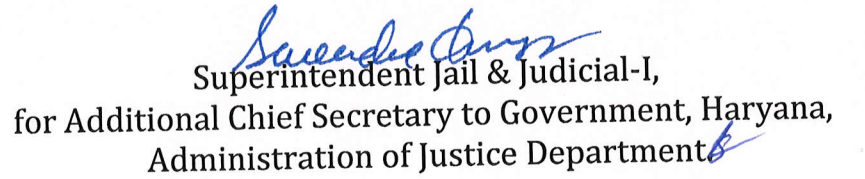 Superintendent Jail & Judicial-I,
for Additional Chief Secretary to Government, Haryana,
Administration of Justice Department